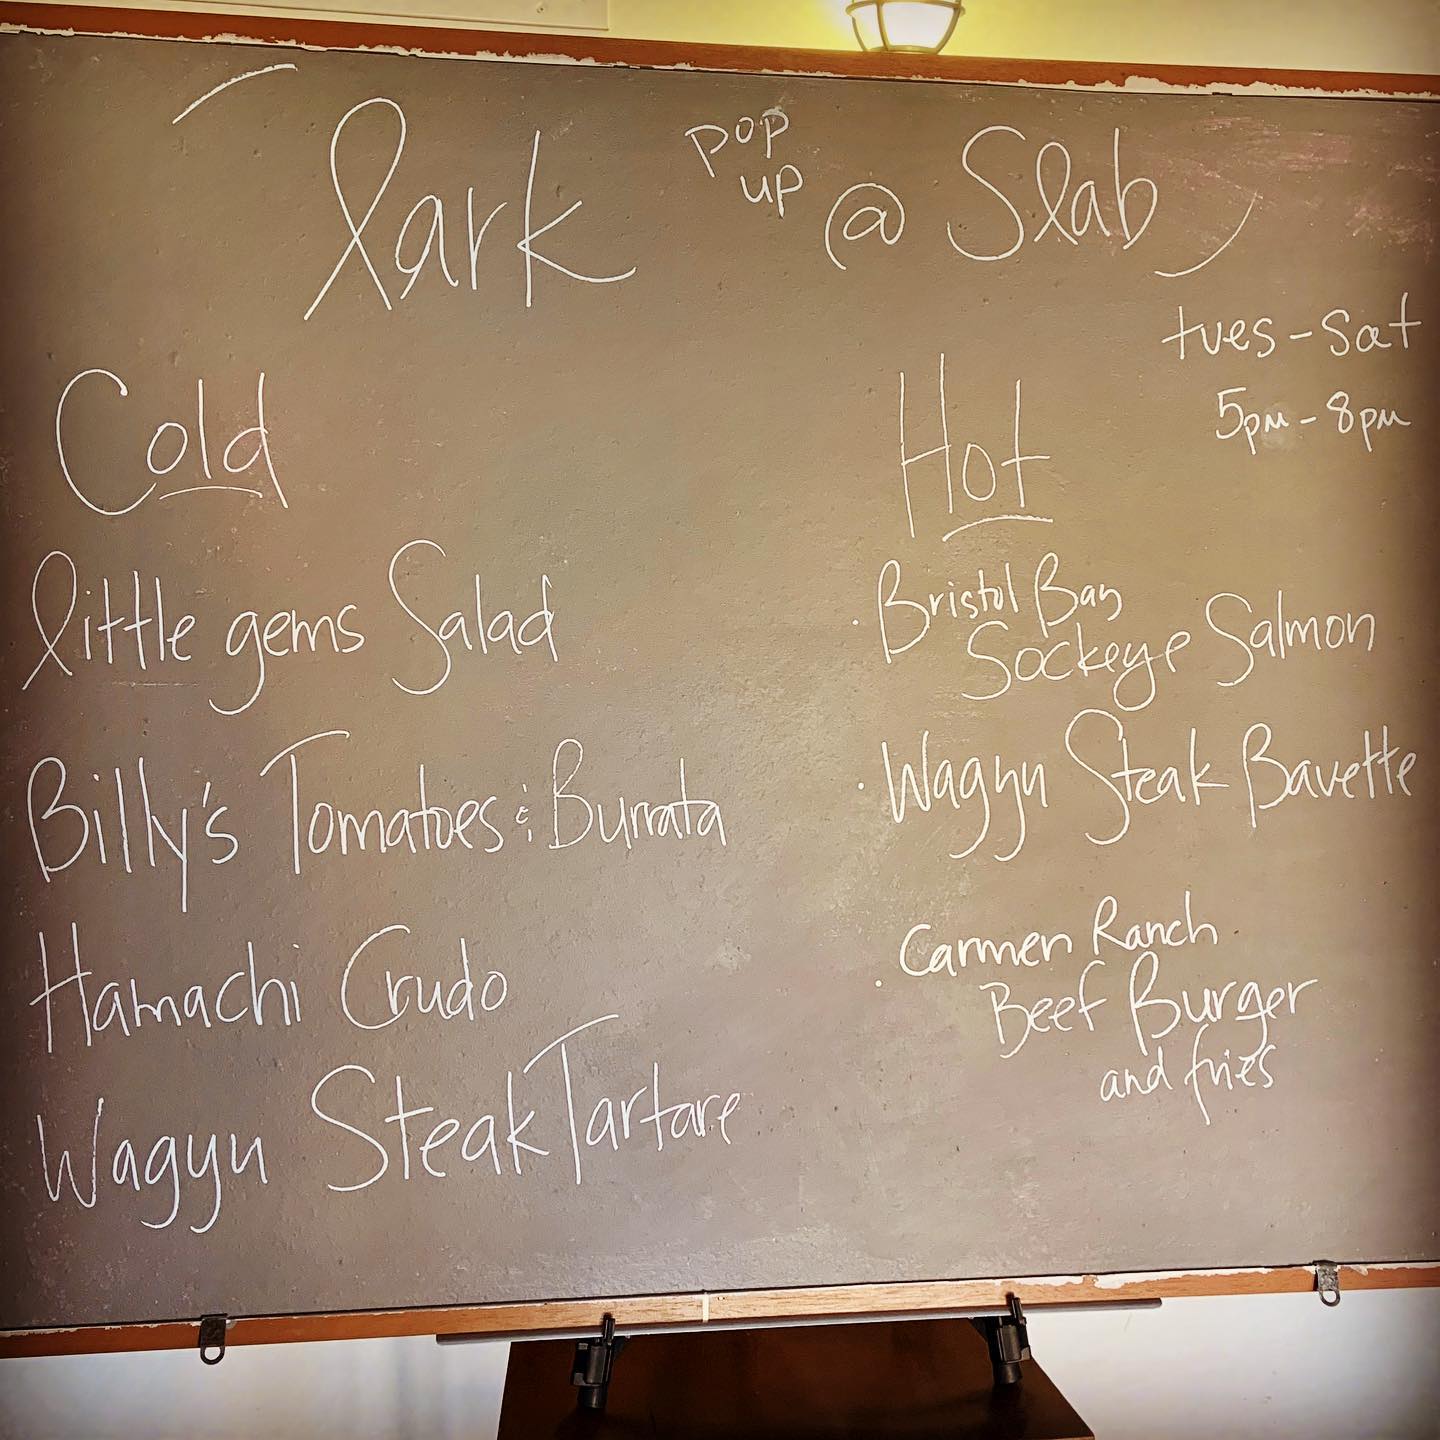 lark pop up @ Slab
tues - sat
5pm - 8pm
Cold
little gems Salad
Billy's Tomatoes & Burrata
Hamachi Crudo
Wagyu Steak Tartare
Hot
· Bristol Bay
Sockeye Salmon
· Wagyu Steak Bavette
· Carmen Ranch
Beef Burger
and fries